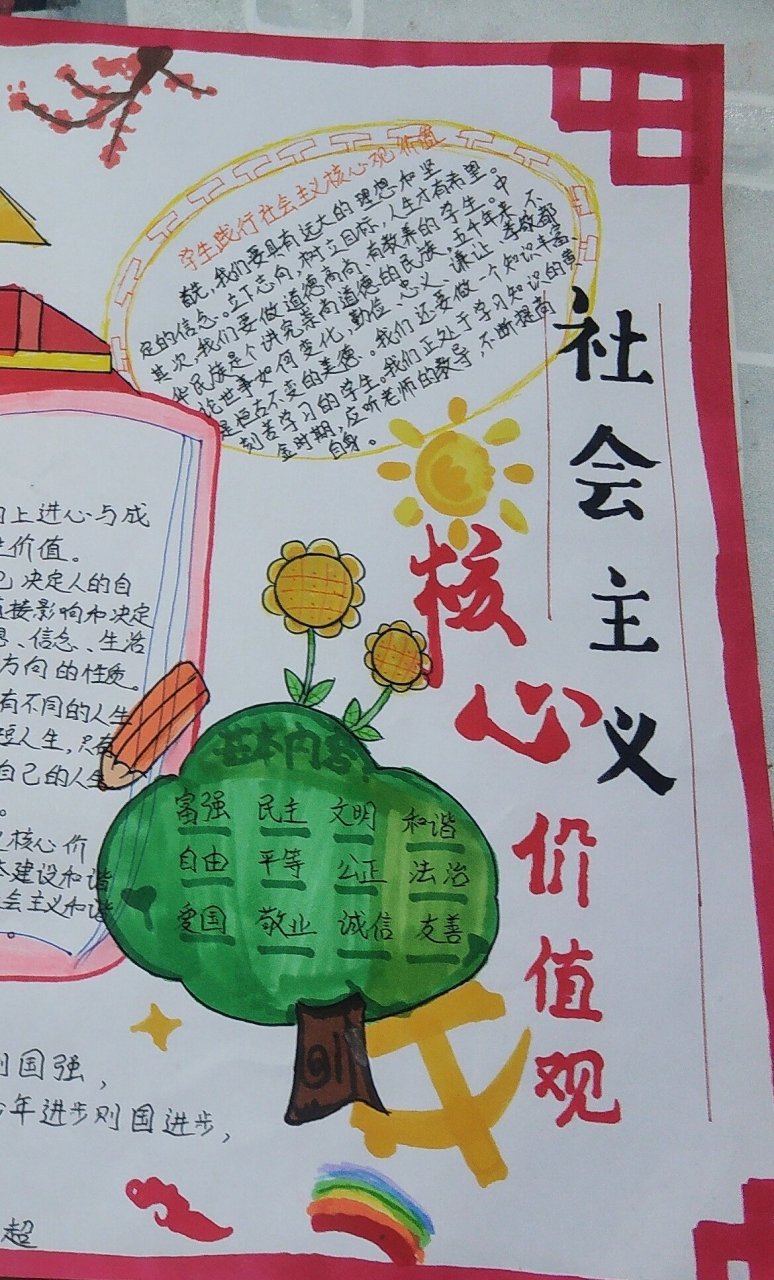 社会主义
核心价值观
学生践行社会主义核心观价值
首先,我们要具有远大的理想和坚
定的信念。立下志向,树立目标,人生才有希望。
其次,我们要做道德高尚、有教养的学生。中
华民族是个讲究崇尚道德的民族,五千年来,不
论世事如何变化,勤俭、忠义、谦让、孝敬都
是恒古不变的美德。我们还要做一个知识丰富、
刻苦学习的学生。我们正处于学习知识的黄
金时期,应听老师的教导,不断提高
自身。
上进心与成
价值。
决定人的自
直接影响和决定
、信念、生活
方向的性质。
有不同的人生
短人生,只有
自己的人生
。
核心价
建设和谐
会主义和谐
。
基本内容:
富强 民主 文明 和谐
自由 平等 公正 法治
爱国 敬业 诚信 友善
则国强,
少年进步则国进步,
超